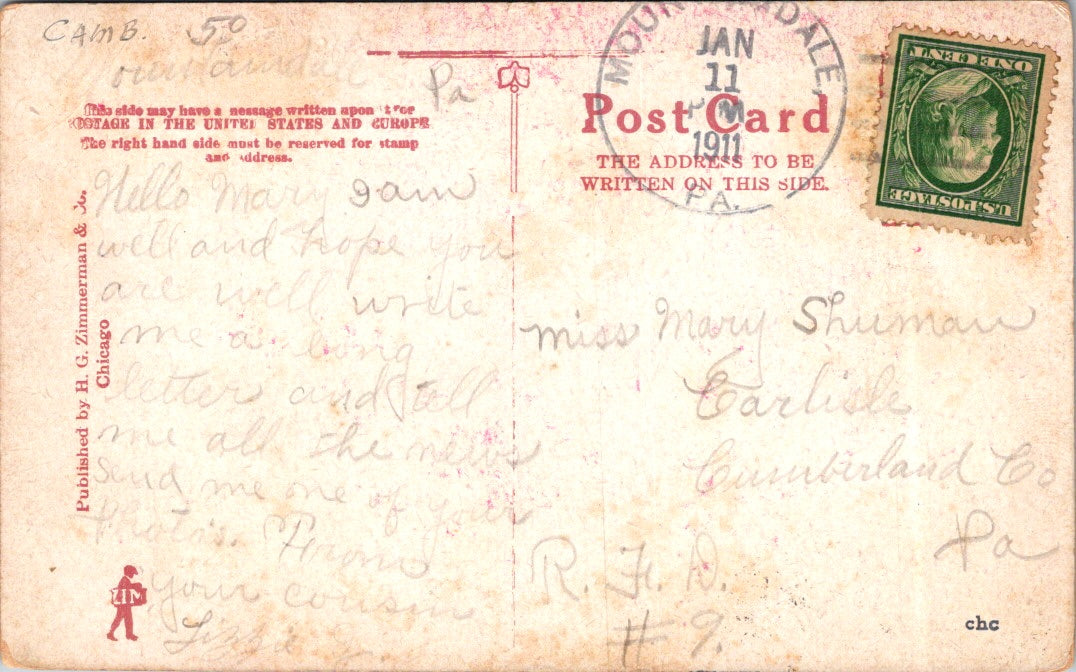 CAMB. 50
Pa
This side may have a message written upon it for
POSTAGE IN THE UNITED STATES AND EUROPE
The right hand side must be reserved for stamp
and address.
Hello Mary I am
well and hope you
are well write
me a long
letter and tell
me all the news
send me one of your
Photo's. From
your cousin
Lizzie
Published by H. G. Zimmerman & Co.
Chicago
ZIM
MOUNTAINDALE,
JAN
11
PM
1911
PA.
Post Card
THE ADDRESS TO BE
WRITTEN ON THIS SIDE.
U.S. POSTAGE
ONE CENT
Miss Mary Shuman
Carlisle
Cumberland Co
Pa
R. F. D.
# 9.
chc